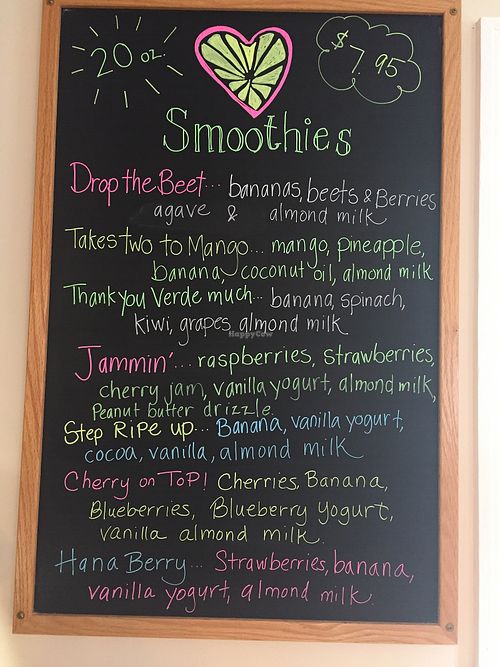 20 oz.
$ 7.95
Smoothies
Drop the Beet... bananas, beets & Berries
agave & almond milk
Takes Two to Mango... mango, pineapple,
banana, coconut oil, almond milk
Thank you Verde much... banana, spinach,
kiwi, grapes almond milk
HappyCow
Jammin'... raspberries, strawberries,
cherry jam, vanilla yogurt, almond milk,
Peanut butter drizzle.
Step Ripe up... Banana, vanilla yogurt,
cocoa, vanilla, almond milk
Cherry on ToP! Cherries, Banana,
Blueberries, Blueberry Yogurt,
vanilla almond milk.
Hana Berry... Strawberries, banana,
vanilla yogurt, almond milk.